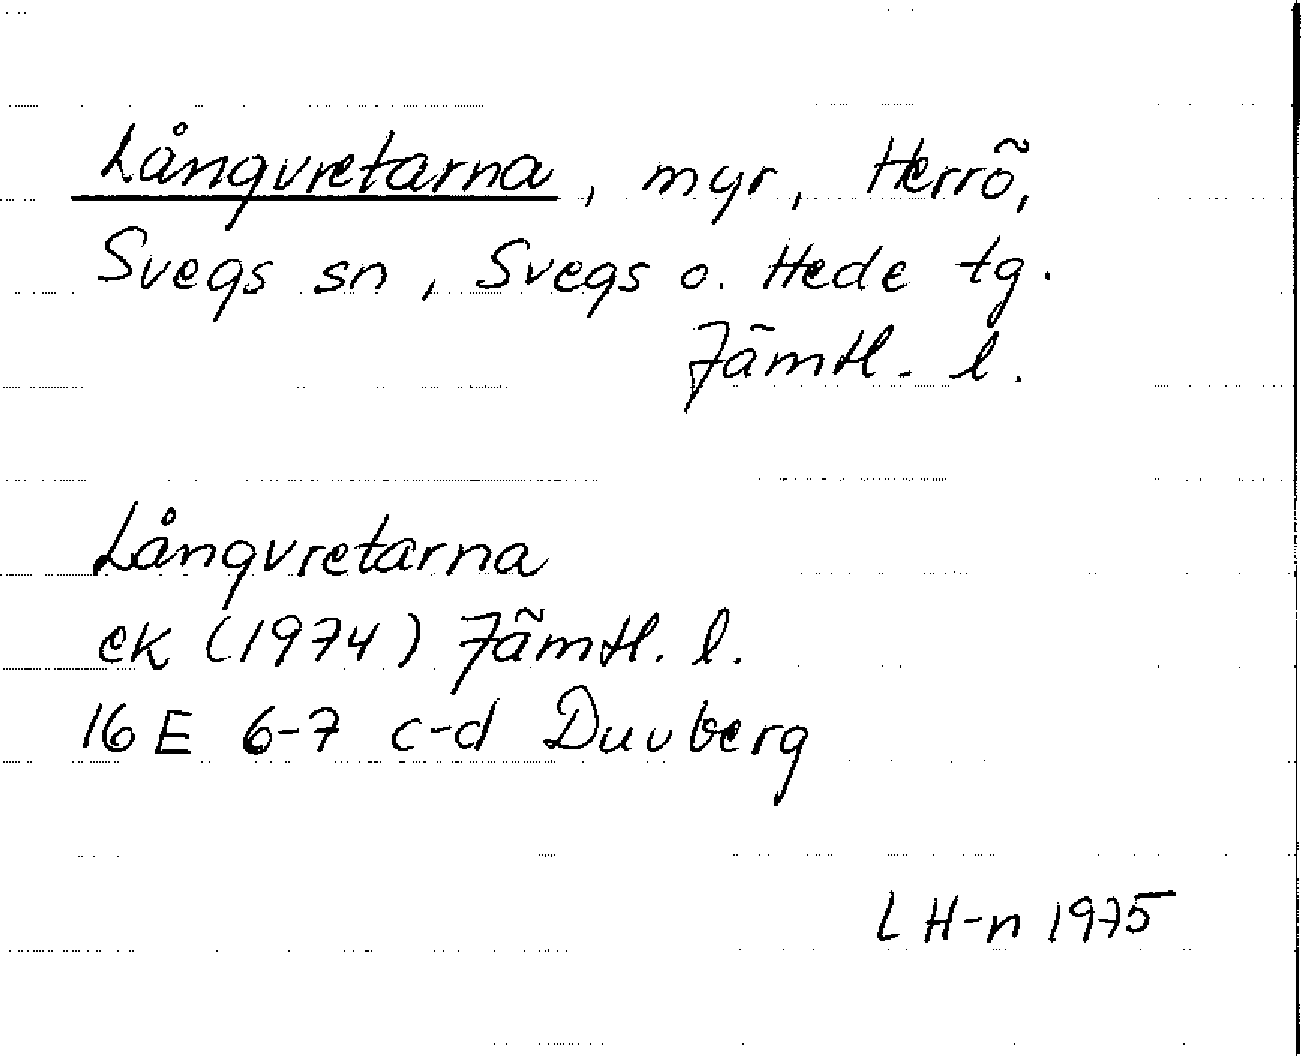 Långvretarna, myr, Herrö,
Svegs sn, Svegs o. Hede tg.
Jämtl. l.
Långvretarna
ek (1974) Jämtl. l.
16 E 6-7 c-d Duvberg
L H-n 1975